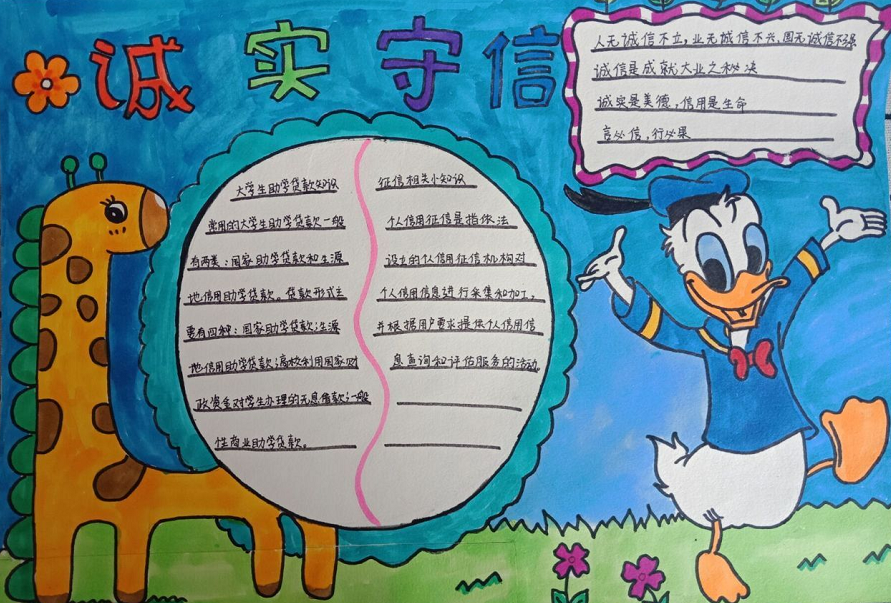 诚实守信
人无诚信不立，业无诚信不兴，国无诚信不强
诚信是成就大业之秘诀
诚实是美德，信用是生命
言必信，行必果
大学生助学贷款知识
常用的大学生助学贷款一般
有两类：国家助学贷款和生源
地信用助学贷款。贷款形式主
要有四种：国家助学贷款；生源
地信用助学贷款；高校利用国家财
政资金对学生办理的无息借款；一般
性商业助学贷款。
征信相关小知识
个人信用征信是指依法
设立的个人信用征信机构对
个人信用信息进行采集和加工。
并根据用户要求提供个人信用信
息查询和评估服务的活动